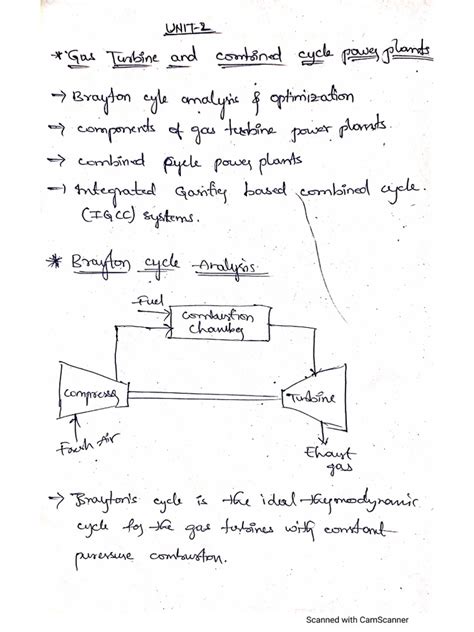 UNIT-2
* Gas Turbine and combined cycle power plants
→ Brayton cyle analysis & optimization
→ components of gas turbine power plants.
→ combined cycle power plants
→ Integrated Gasifier based combined cycle.
(IGCC) systems.
* Brayton cycle Analysis.
Fuel
combustion
chamber
compressor
Turbine
Fresh Air
Exhaust
gas
→ Brayton's cycle is the ideal thermodynamic
cycle for the gas turbines with constant
pressure combustion.
Scanned with CamScanner